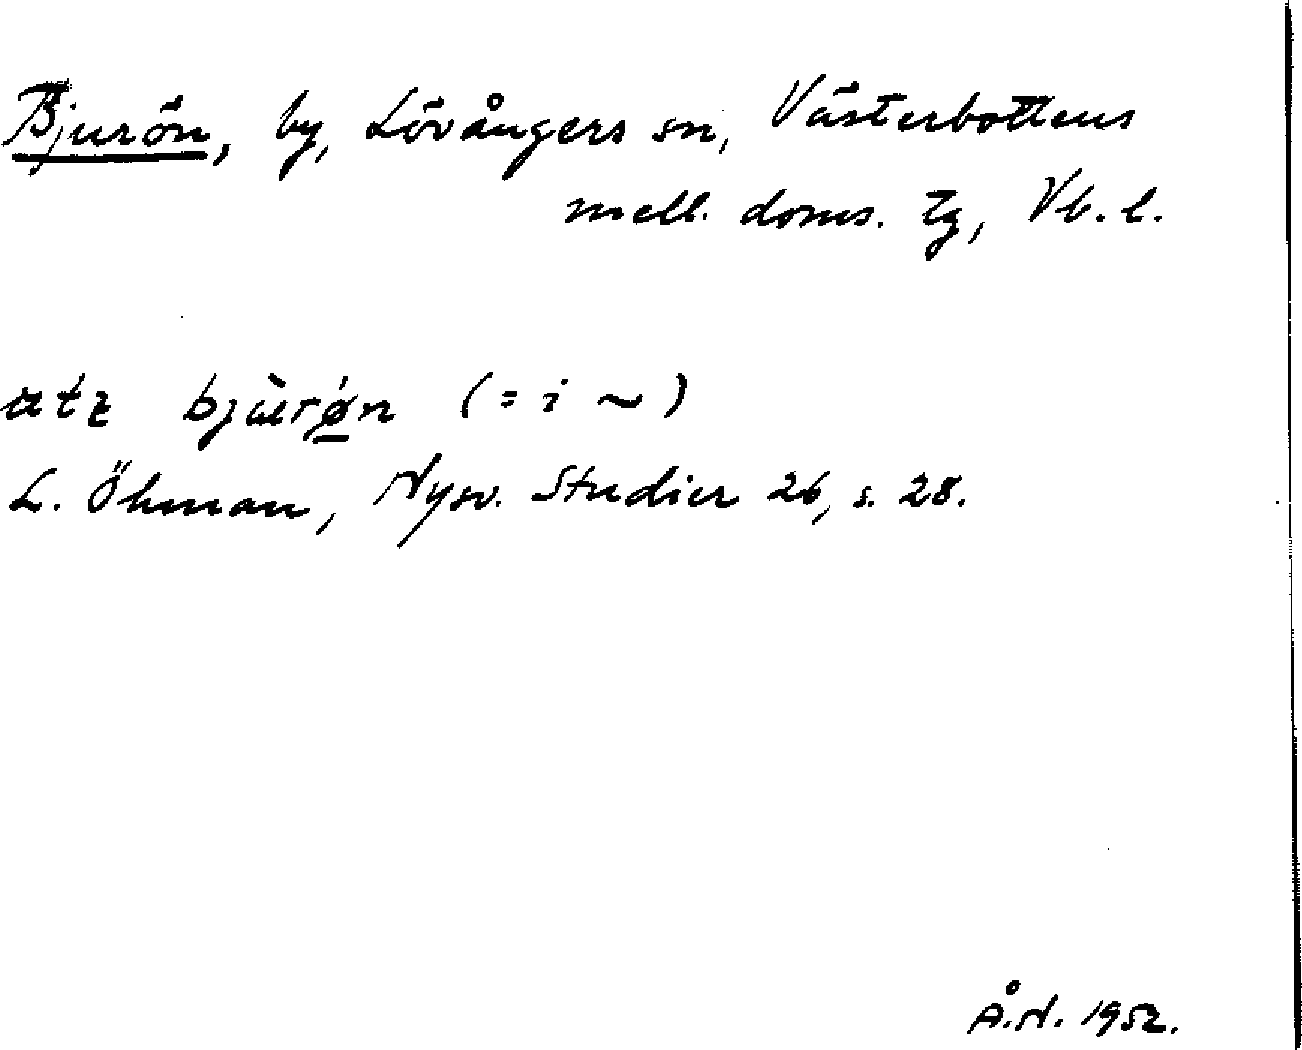 Bjurön, by, Lövångers sn, Västerbottens
mell. doms. tg, Vb. l.
bjùrǿn (= i ~)
L. Öhman, Nysv. Studier 26, s. 28.
Å.N. 1952.